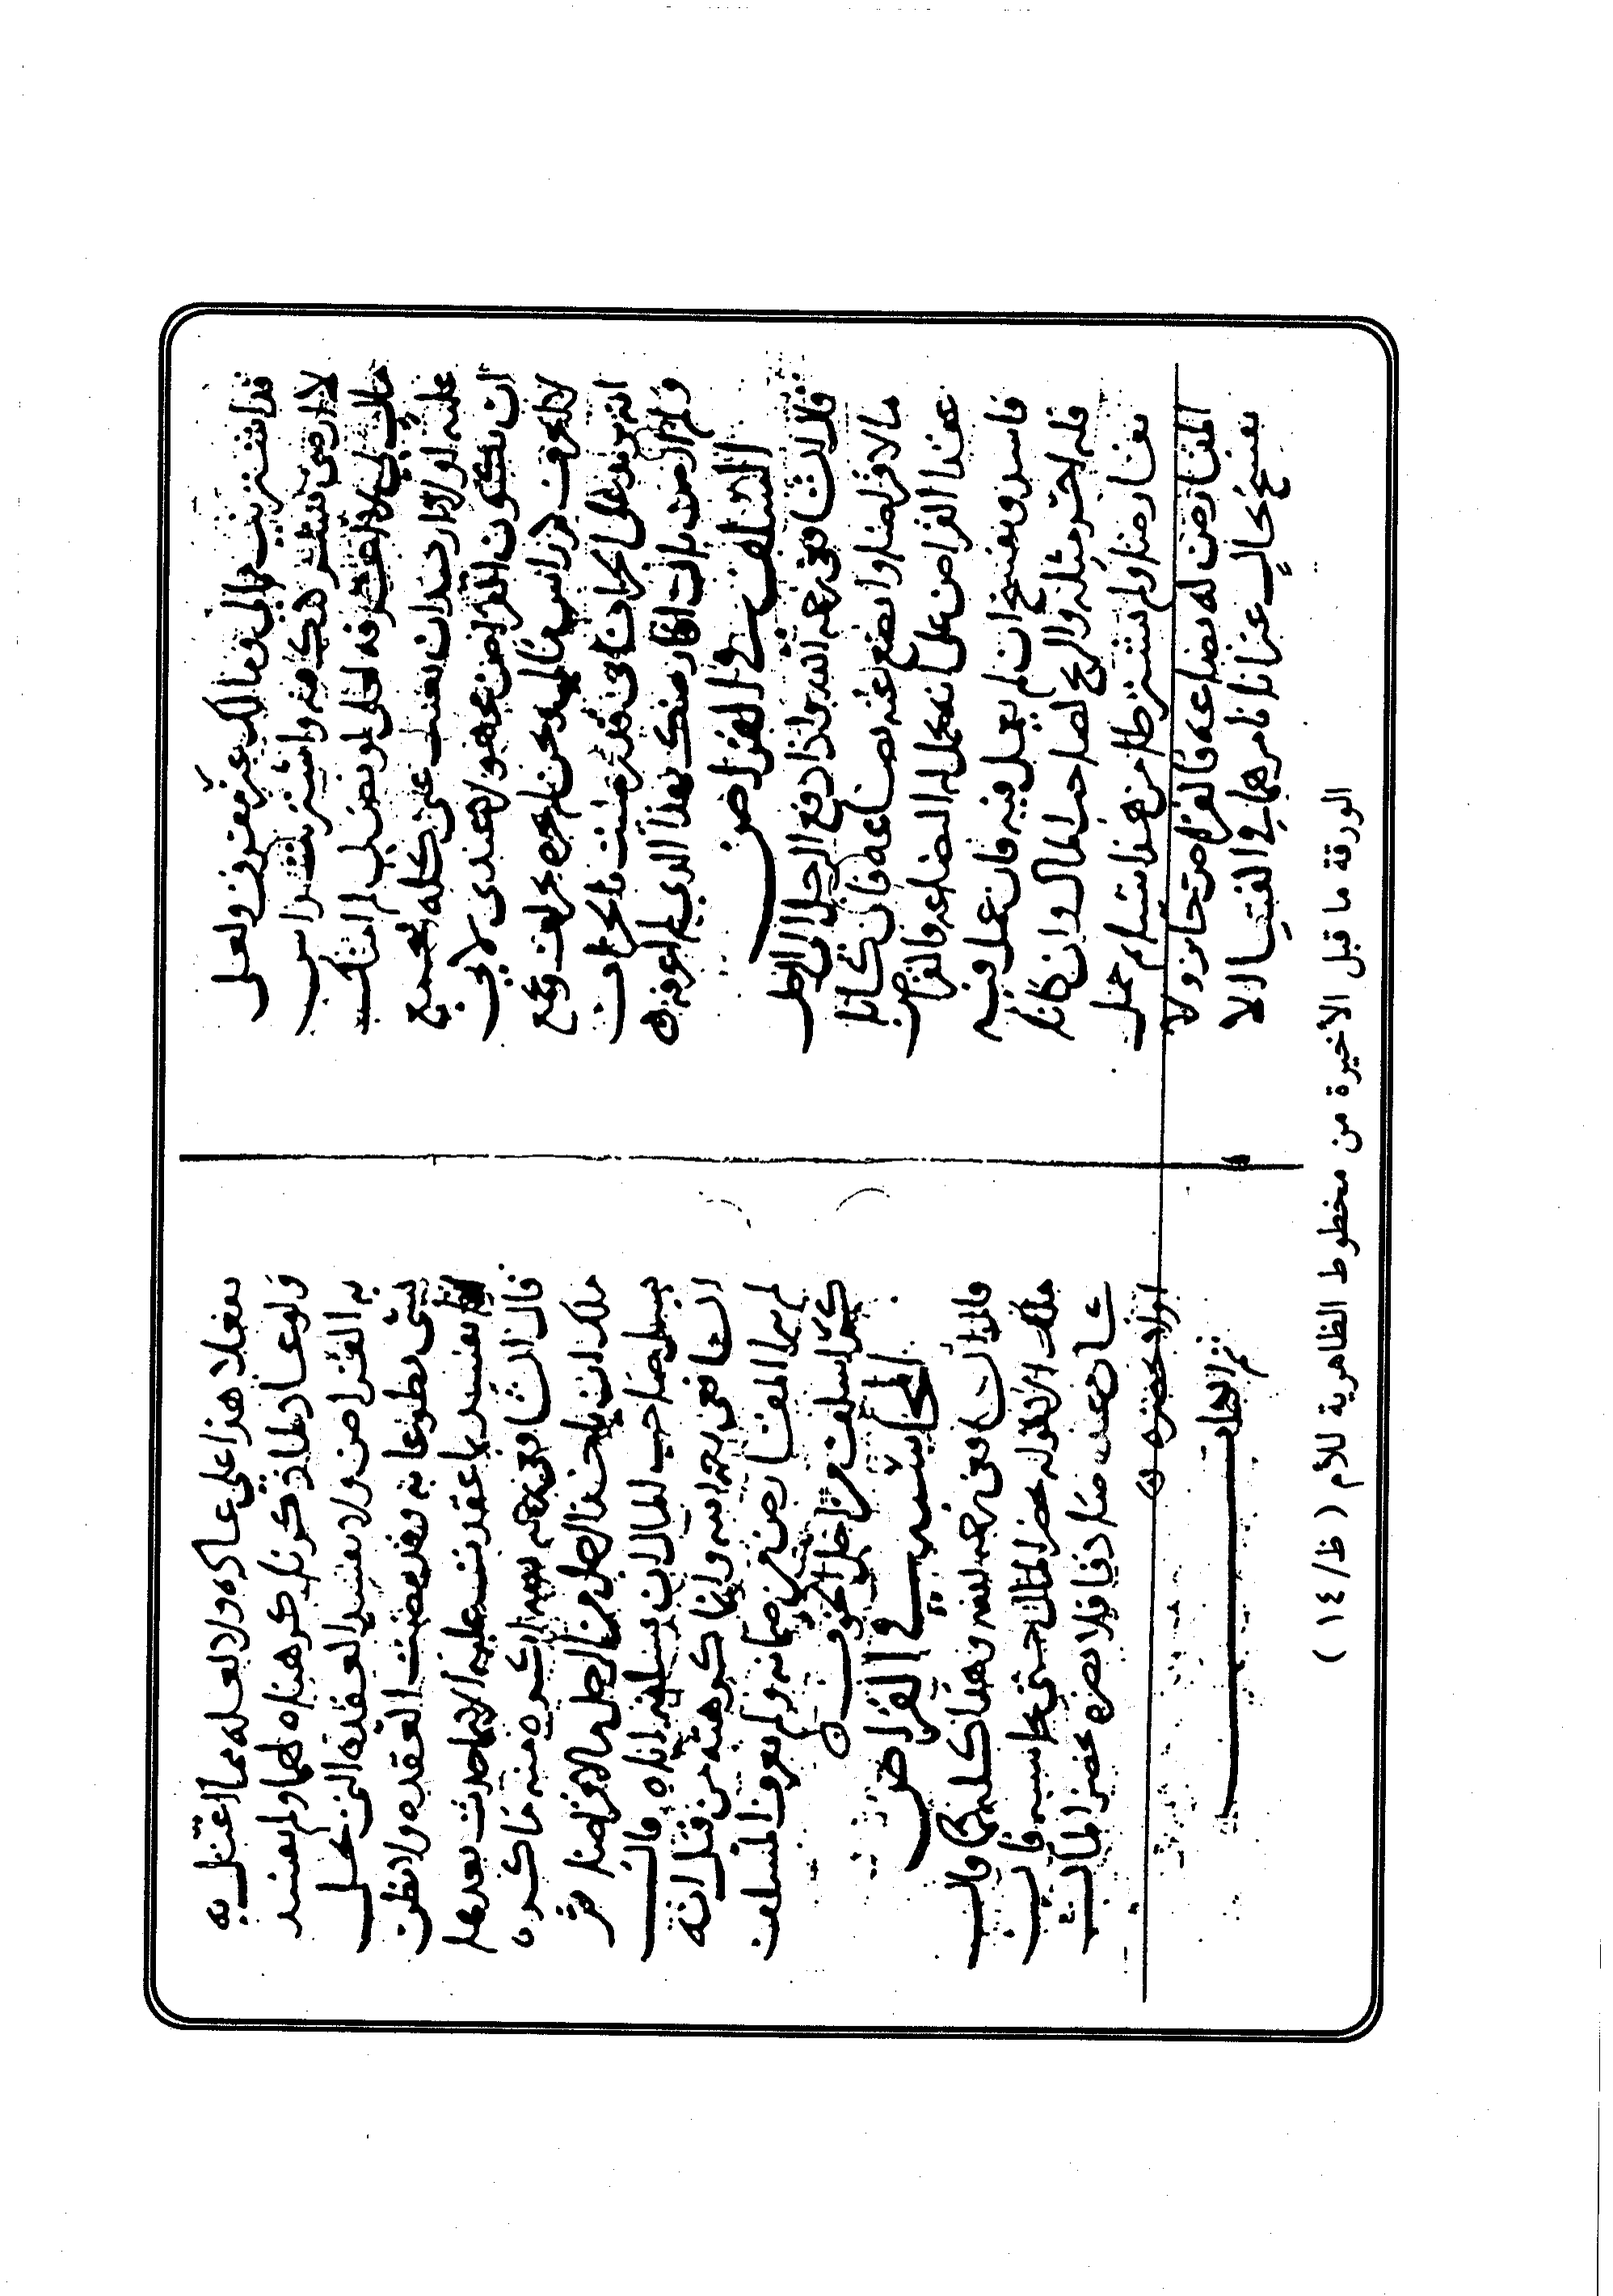 قد اشتريت مالي وما لك غير مفرق ولعلي
لا ارضى بشركتك فيه واشتريت براس
مالي لي لا اصرفه لعلي لو نض لي لم امنك
عليه او لا اريد ان يغيب عني كله فيجمع
ان يكون القراض عنده لا يجوز عندي لاني
لا اعرف كم راس مالي ومال غيري من قبل
انه يزيد على الجزاف قد رضيت بالجزاف
ولم ارض بان اقارضك بهذا الذي لم اعرفه ٥
السلف في القراض
قال الشافعي رحمه الله واذا دفع الرجل الى الرجل
مالا قراضا وابضع عنه بضاعه فان كانا
عقدا القراض على انه يحمل له البضاعه فالقراض
فاسد ويفسخ ان لم يعمل فيه فان عمل فيه
فله اجر مثله والربح لصاحب المال وان كانا
تقارضا ولم يشترطا من هذا شيا ثم حمل
المقارض له بضاعه فالقراض جائز ولا
يفسخ بحال غير انا نامرهما في الفتيا الا
يفعلا هذا على عاده ولا لعله مما اعتل به
ولو عادا لما ذكرنا كرهناه لهما ولم يفسد
به القراض ولا يفسد العقده التي تحل
بشي تطوعا به وقد مضت العقده ولا تطرح
انما تفسد بما عقدت عليه لا بما حدث بعدها
قال الشافعي رحمه الله اكره منه ما كره
ملك ان ياخذ الرجل من الرجل مالا قراضا ثم
يسل صاحب المال ان يسلفه اياه قال
الشافعي رحمه الله وانما كرهته من قبل انه
لم يبرا المقارض من ضمانه ولم يعرف المسلف
كم اسلف من اجل الخوف ٥
المحاسبه في القراض
قال الشافعي رحمه الله وهذا كله كما قال
ملك الا قوله يحضر المال حتى يحاسبه فان
كان عنده صادقا فلا يضره يحضر المال
او لا يحضره ٥
تم الجزء
الورقة ما قبل الأخيرة من مخطوط الظاهرية للأم ( ظ/١٤ )